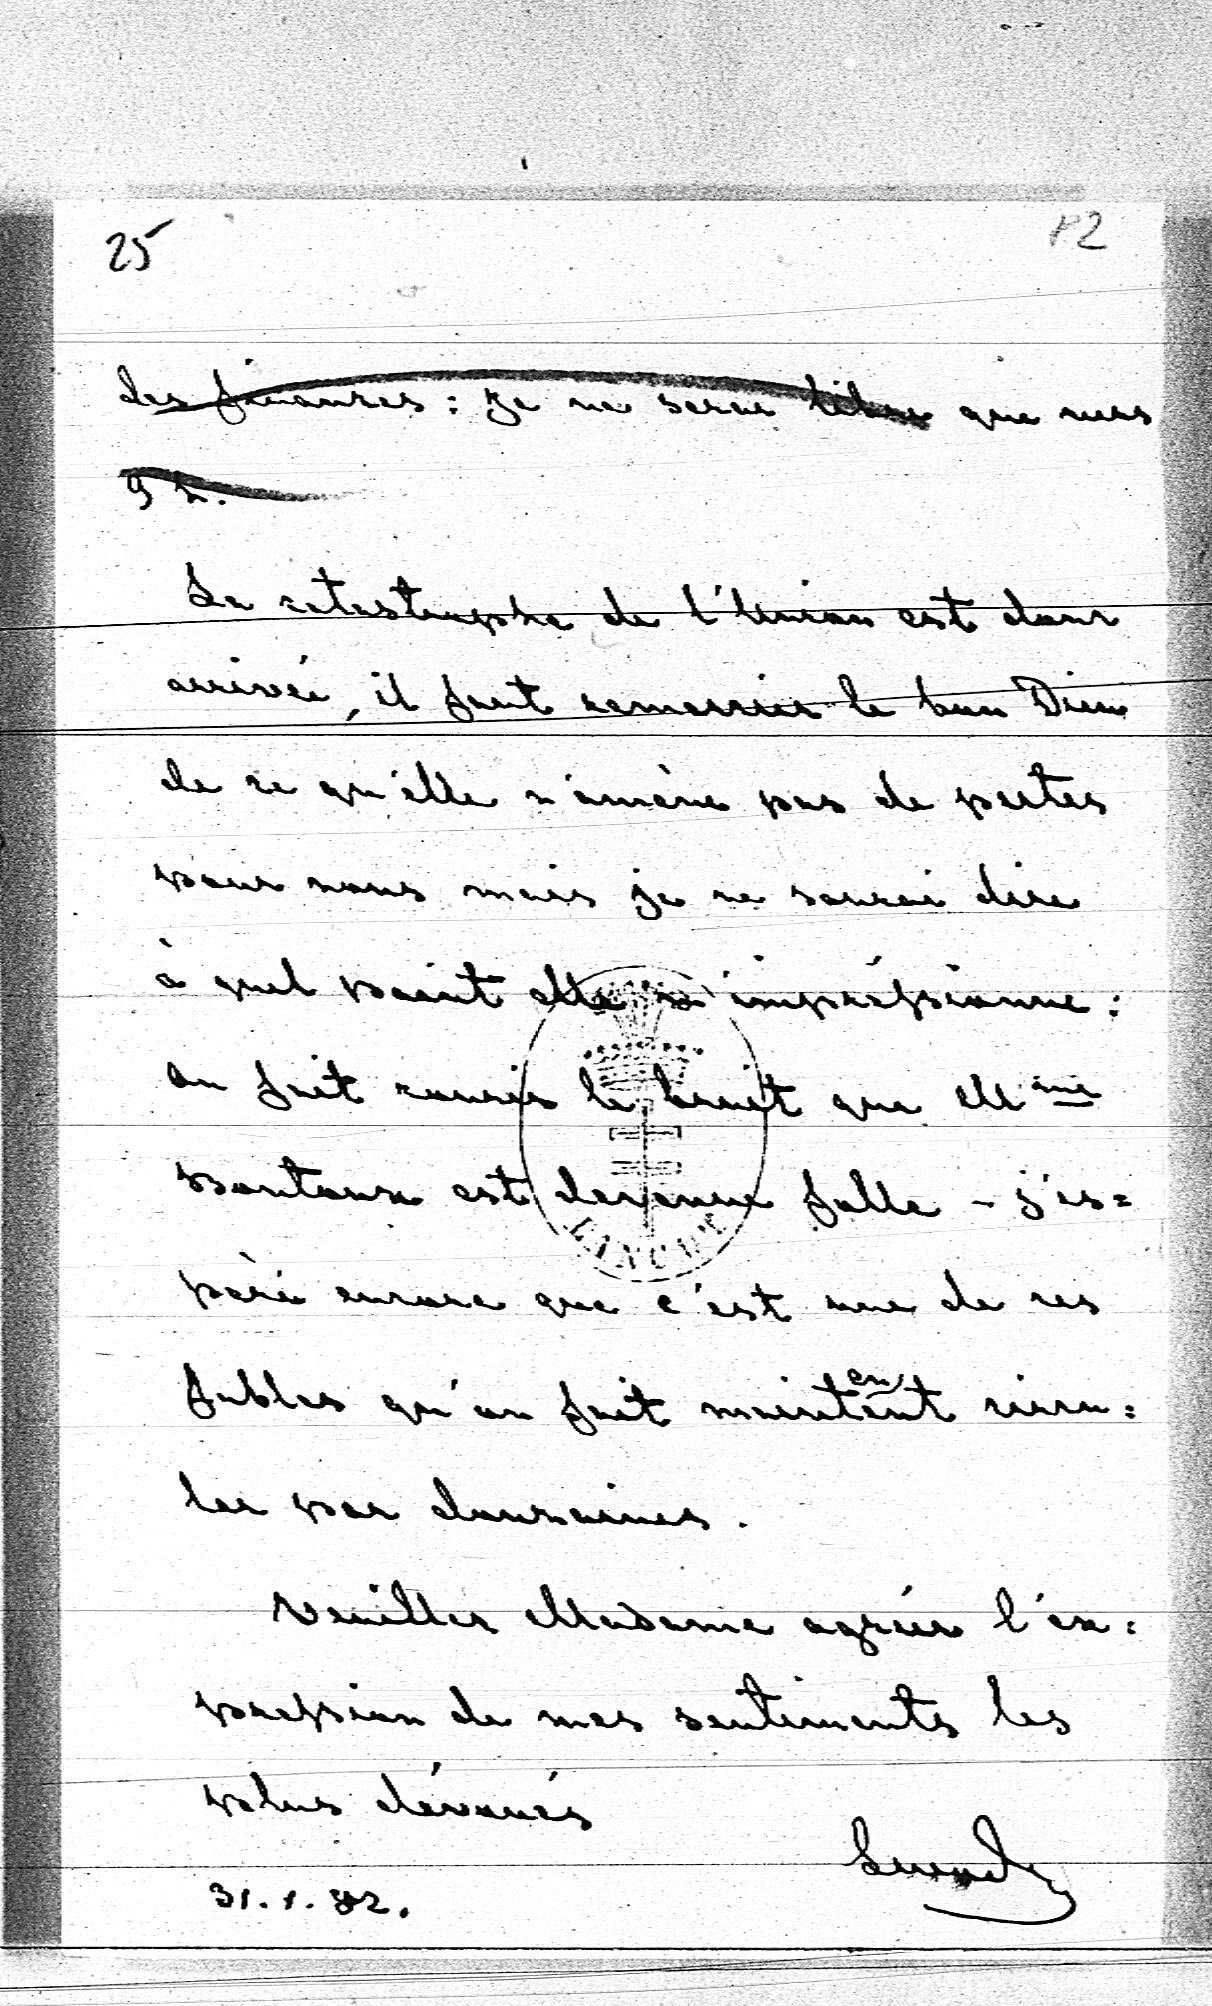 25
P2
des finances : je ne serai libre que vers
9 h.
La catastrophe de l'Union est donc
arrivée, il faut remercier le bon Dieu
de ce qu'elle n'amène pas de pertes
pour nous mais je ne saurai dire
à quel point elle m'impressionne :
on fait courir le bruit que Mme
Bontoux est devenue folle – j'es=
père encore que c'est une de ces
fables qu'on fait maintenent circu=
an
ler par douzaines.
Veuillez Madame agréer l'ex=
pression de mes sentiments les
plus dévoués
31.1.82.